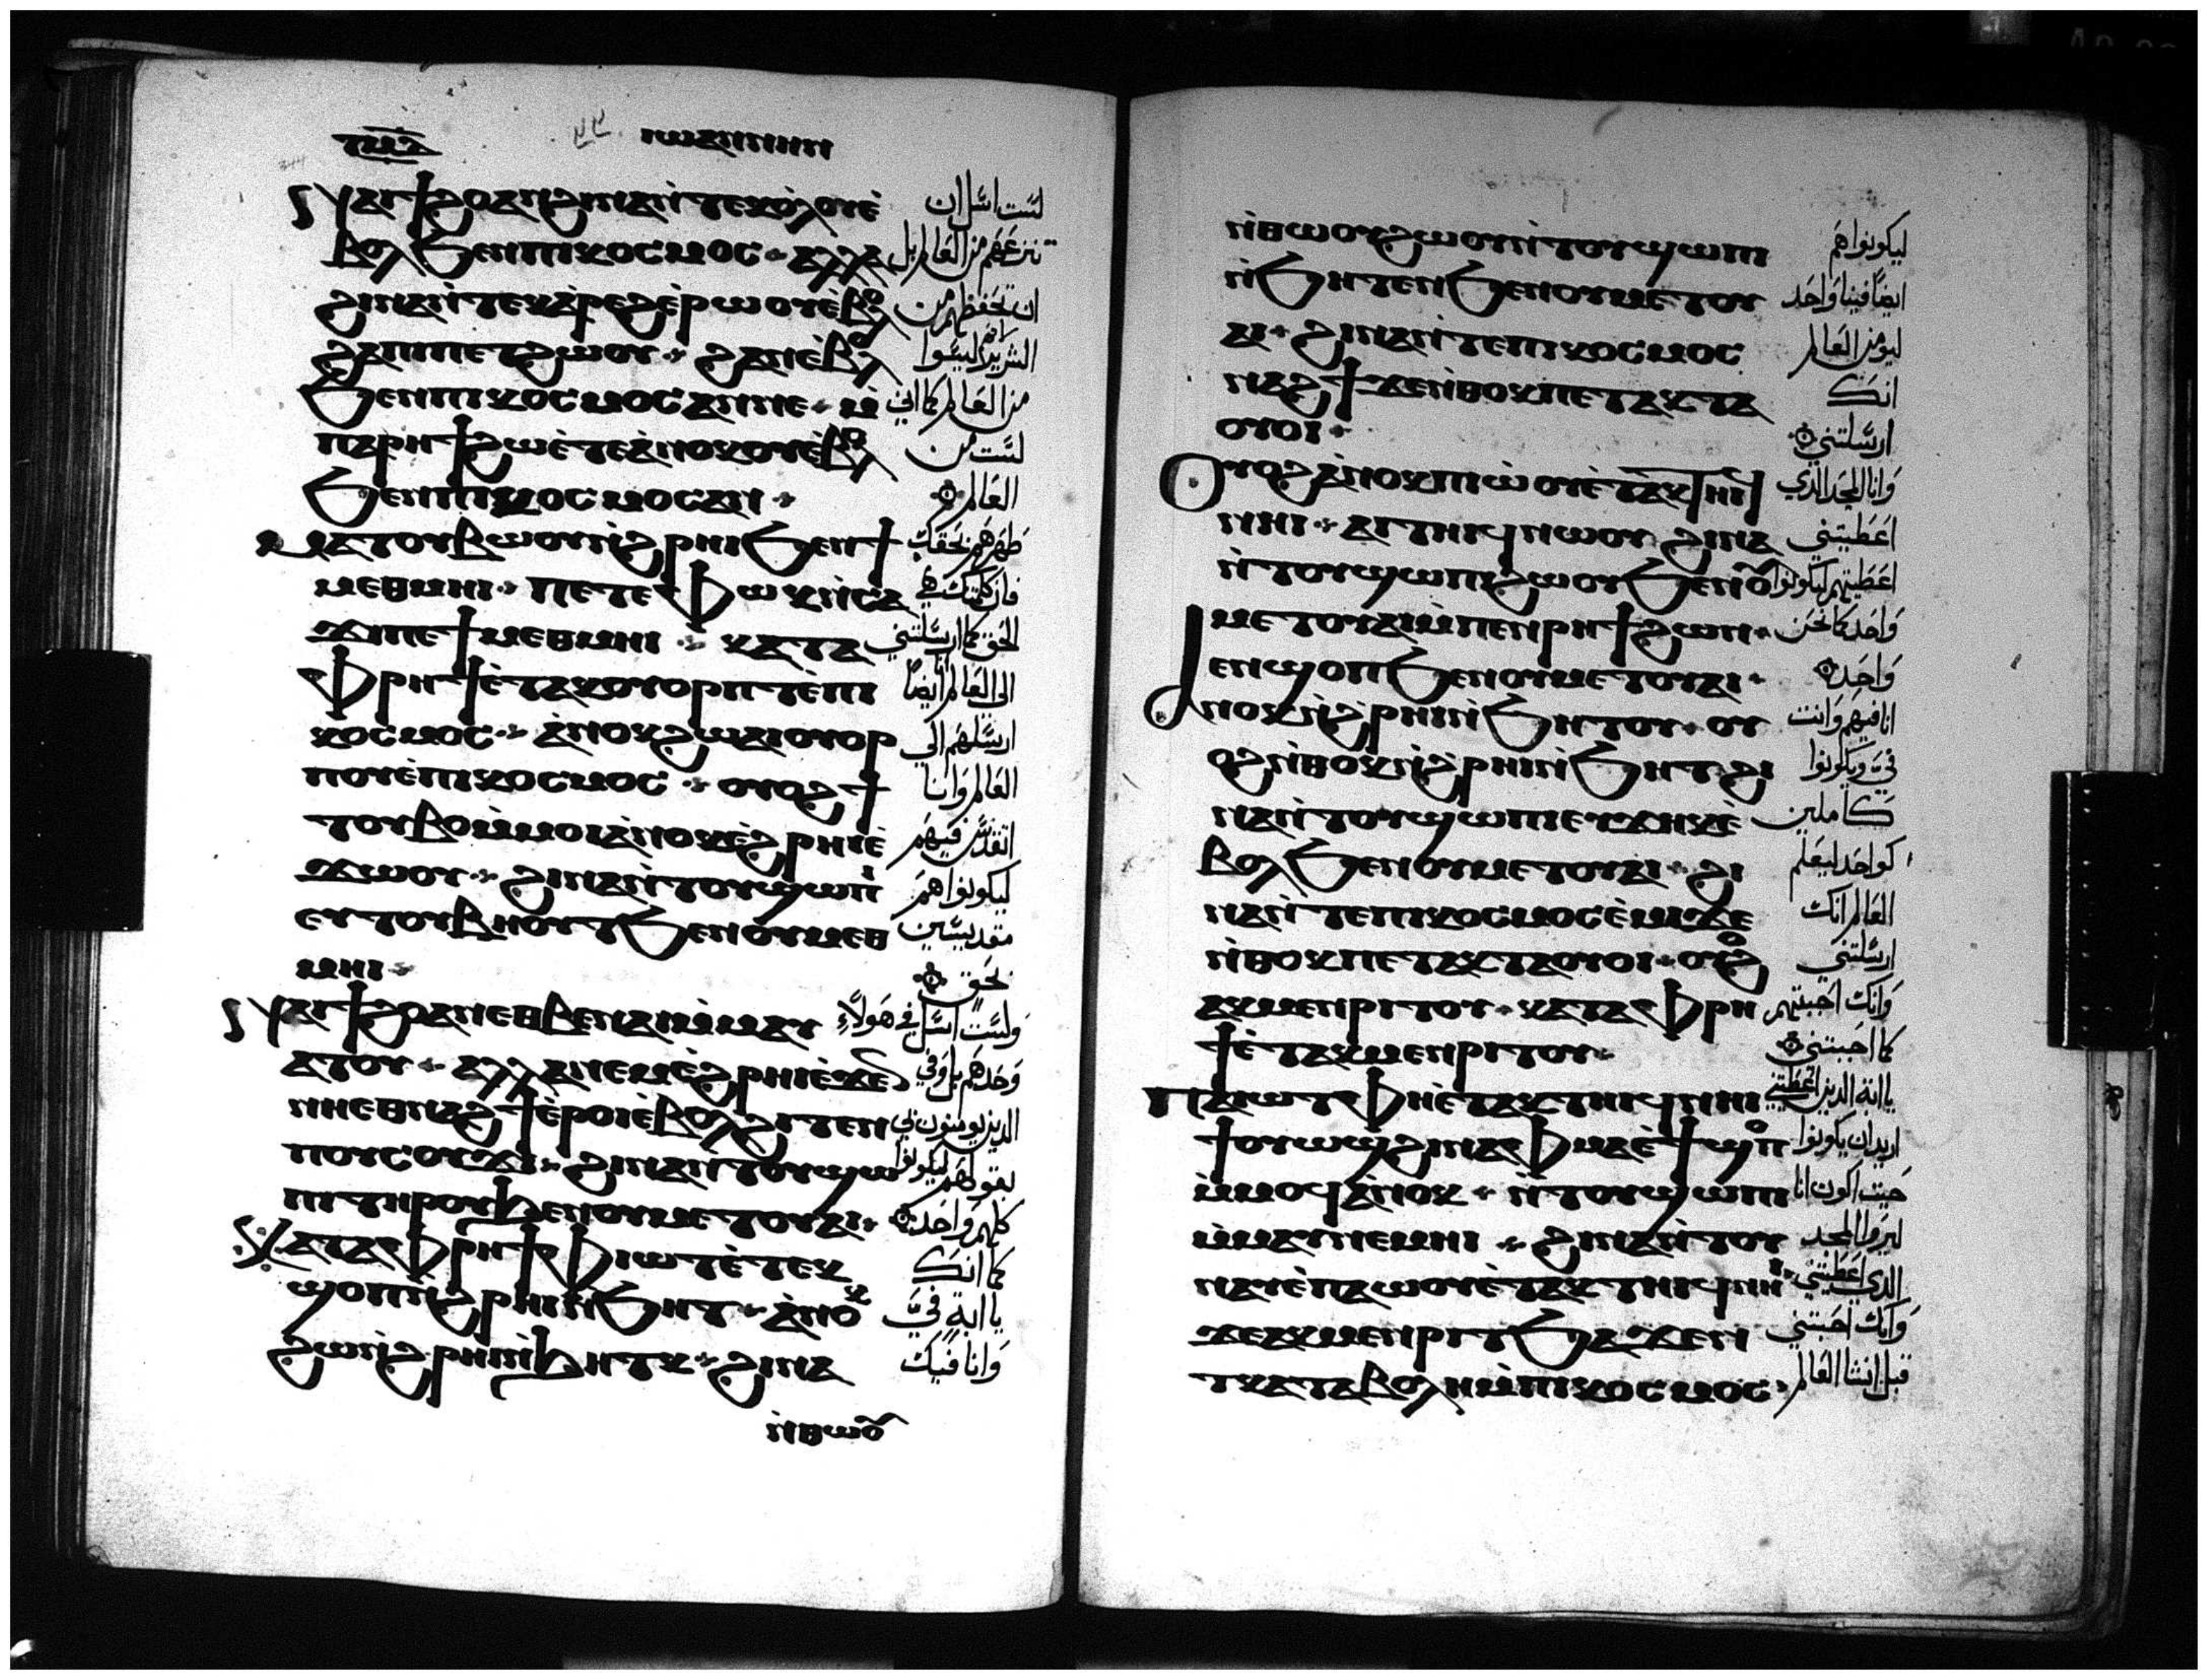 ⲧⲙⲇ ⲓⲱⲁⲛⲛⲏⲛ
ⲛⲁⲓϯϩⲟ ⲁⲛ ϩⲓⲛⲁ ⲛ̀ⲧⲉⲕⲟ̀ⲗⲟⲩ ⲉ̀
ⲃⲟⲗ ϧⲉⲛ ⲡⲓⲕⲟⲥⲙⲟⲥ ⲁⲗⲗⲁ
ϩⲓⲛⲁ ⲛ̀ⲧⲉⲕⲁ̀ⲣⲉϩ ⲉ̀ⲣⲱⲟⲩ ⲉ̀ⲃⲟⲗ
ϩⲁ ⲡⲓⲡⲉⲧϩⲱⲟⲩ ϩⲁⲛⲉ̀ⲃⲟⲗ
ϧⲉⲛ ⲡⲓⲕⲟⲥⲙⲟⲥ ⲁⲛ ⲛⲉ ⲙ̀
ⲡⲁⲣⲏϯ ϩⲱ ⲉ̀ⲧⲉ ⲁ̀ⲛⲟⲕ ⲟⲩⲉ̀ⲃⲟⲗ
ϧⲉⲛ ⲡⲓⲕⲟⲥⲙⲟⲥ ⲁⲛ
ⲙⲁⲧⲟⲩⲃⲱⲟⲩ ⲛ̀ϩ̀ⲣⲏⲓ ϧⲉⲛ ϯ
ⲙⲉⲑⲙⲏⲓ ⲡⲉⲧⲉⲫⲱⲕ ⲛ̀ⲥⲁ
ϫⲓ ⲡⲉ ϯⲙⲉⲑⲙⲏⲓ ⲕⲁⲧⲁ
ⲫⲣⲏϯ ⲉ̀ⲧⲁⲕⲟⲩⲟⲣⲡⲧ ⲉ̀ⲡⲓ
ⲕⲟⲥⲙⲟⲥ ⲁ̀ⲛⲟⲕ ϩⲱ ⲁⲓⲟⲩⲟⲣ
ⲡⲟⲩ ⲉ̀ⲡⲓⲕⲟⲥⲙⲟⲥ ⲟⲩⲟϩ ϯ
ⲧⲟⲩⲃⲟ ⲙ̀ⲙⲟⲓ ⲁ̀ⲛⲟⲕ ⲉ̀ϩ̀ⲣⲏⲓ ⲉ̀
ϫⲱⲟⲩ ϩⲓⲛⲁ ⲛ̀ⲧⲟⲩϣⲱⲡⲓ
ⲉⲩⲧⲟⲩⲃⲏⲟⲩⲧ ϧⲉⲛ ⲟⲩⲙⲉⲑ
ⲙⲏⲓ
ⲛⲁⲓϯϩⲟ ⲁⲛ ⲉⲑⲃⲉ ⲛⲁⲓ ⲙ̀ⲙⲁⲩ
ⲁⲧⲟⲩ ⲁⲗⲗⲁ ⲛⲉⲙ ⲉ̀ϩ̀ⲣⲏⲓ ⲉ̀ϫⲉ
ⲛⲏ ⲉⲑⲛⲁϩϯ ⲉ̀ⲣⲟⲓ ⲉ̀ⲃⲟⲗ ϩⲓⲧⲉⲛ
ⲡⲟⲩⲥⲟⲩϫⲓ ϩⲓⲛⲁ ⲛ̀ⲧⲟⲩϣⲱ
ⲡⲓ ⲧⲏⲣⲟⲩ ϧⲉⲛ ⲟⲩⲙⲉⲧⲟⲩⲁⲓ
ⲕⲁⲧⲁ ⲫⲣⲏϯ ⲫⲓⲱⲧ ⲉ̀ⲧⲉⲕ
ϣⲟⲡ ⲛ̀ϩ̀ⲣⲏⲓ ⲛ̀ϧⲏⲧ ⲁ̀ⲛⲟⲕ
ϩⲱ ⲛ̀ϩ̀ⲣⲏⲓ ⲛ̀ϧⲏⲧⲕ ϩⲓⲛⲁ
ⲛ̀ⲑⲱⲟⲩ
لست اسل ان
تنزعهم من العالم بل
ان تحفظهم من
الشرير ليسوا
من العالم كما اني
لست من
العالم
طهرهم بحقك
فان كلمتك هي
الحق كما ارسلتني
الى العالم ايضا
ارسلهم الي
العالم وانا
اتقدس فيهم
ليكونوا هم
متقدسين
بحق
ولست اسل في هولاء
وحدهم بل وفي
الذين يومنون بي
بقولهم ليكونوا
كلهم واحد
كما انك
يا ابة فيَّ
وانا فيك
ⲛ̀ⲑⲱⲟⲩ ϩⲱⲟⲩ ⲛ̀ⲧⲟⲩϣⲱⲡⲓ
ⲛ̀ϧⲏⲧⲉⲛ ϧⲉⲛ ⲟⲩⲙⲉⲧⲟⲩ
ⲁⲓ ϩⲓⲛⲁ ⲛ̀ⲧⲉ ⲡⲓⲕⲟⲥⲙⲟⲥ
ⲛⲁϩϯ ϫⲉ ⲛ̀ⲑⲟⲕ ⲡⲉⲧⲁⲕⲧⲁ
ⲟⲩⲟⲓ
ⲟⲩⲟϩ ⲁ̀ⲛⲟⲕ ⲡⲓⲱ̀ⲟⲩ ⲉ̀ⲧⲁⲕⲧⲏⲓϥ
ⲛⲏⲓ ⲁⲓⲧⲏⲓϥ ⲛⲱⲟⲩ ϩⲓⲛⲁ
ⲛ̀ⲧⲟⲩϣⲱⲡⲓ ϩⲱⲟⲩ ϧⲉⲛ ⲟⲩ
ⲙⲉⲧⲟⲩⲁⲓ ⲙ̀ⲡⲉⲛⲣⲏϯ ϩⲱⲛ
ⲧⲉⲛϣⲟⲡ ϧⲉⲛ ⲟⲩⲙⲉⲧⲟⲩⲁⲓ
ⲁⲛⲟⲕ ⲛ̀ϩ̀ⲣⲏⲓ ⲛ̀ϧⲏⲧⲟⲩ ⲟⲩ
ⲟϩ ⲛ̀ⲑⲟⲕ ⲛ̀ϩ̀ⲣⲏⲓ ⲛ̀ϧⲏⲧ ϩⲓ
ⲛⲁ ⲛ̀ⲧⲟⲩϣⲱⲡⲓ ⲉⲩϫⲏⲕ ⲉ̀
ⲃⲟⲗ ϧⲉⲛ ⲟⲩⲙⲉⲧⲟⲩⲁⲓ ϩⲓ
ⲛⲁ ⲛ̀ⲧⲉ ⲡⲓⲕⲟⲥⲙⲟⲥ ⲉ̀ⲙⲓ ϫⲉ
ⲛ̀ⲑⲟⲕ ⲡⲉⲧⲁⲕⲧⲁⲟⲩⲟⲓ ⲟⲩⲟϩ
ⲁⲕⲙⲉⲛⲣⲓⲧⲟⲩ ⲕⲁⲧⲁ ⲫⲣⲏ
ϯ ⲉ̀ⲧⲁⲕⲙⲉⲛⲣⲓⲧⲟⲩ
ⲡⲁⲓⲱⲧ ⲫⲏ ⲉ̀ⲧⲁⲕⲧⲏⲓϥ ⲛⲏⲓ
ϯⲟⲩⲱϣ ϩⲓⲛⲁ ⲫⲙⲁ ⲉ̀ϯϣⲟⲡ
ⲙ̀ⲙⲟϥ ⲁ̀ⲛⲟⲕ ⲛ̀ⲧⲟⲩϣⲱⲡⲓ
ⲙ̀ⲙⲁⲩ ⲛⲉⲙⲏⲓ ϩⲓⲛⲁ ⲛ̀ⲧⲟⲩ
ⲛⲁⲩ ⲉ̀ⲡⲁⲱⲟⲩ ⲉ̀ⲧⲁⲕⲧⲏⲓϥ ⲛⲏⲓ
ϫⲉ ⲁⲕⲙⲉⲛⲣⲓⲧ ϧⲁϫⲉⲛ
ⲧⲕⲁⲧⲁⲃⲟⲗⲏ ⲙ̀ⲡⲓⲕⲟⲥⲙⲟⲥ
ليكونوا هم
ايضا فينا واحد
ليومن العالم
انك
ارسلتني
وانا المجد الذي
اعطيتني
اعطيتهم ليكونوا
واحد كما نحن
واحد
انا فيهم وانت
فيَّ ويكونوا
كاملين
كواحد ليعلم
العالم انك
ارسلتني
وانك احببتهم
كما احببتني
يا ابة الذين اعطيتني
اريد ان يكونوا
حيت اكون انا
ليروا المجد
الذي اعطيتني
وانك احببتني
قبل انشا العالم